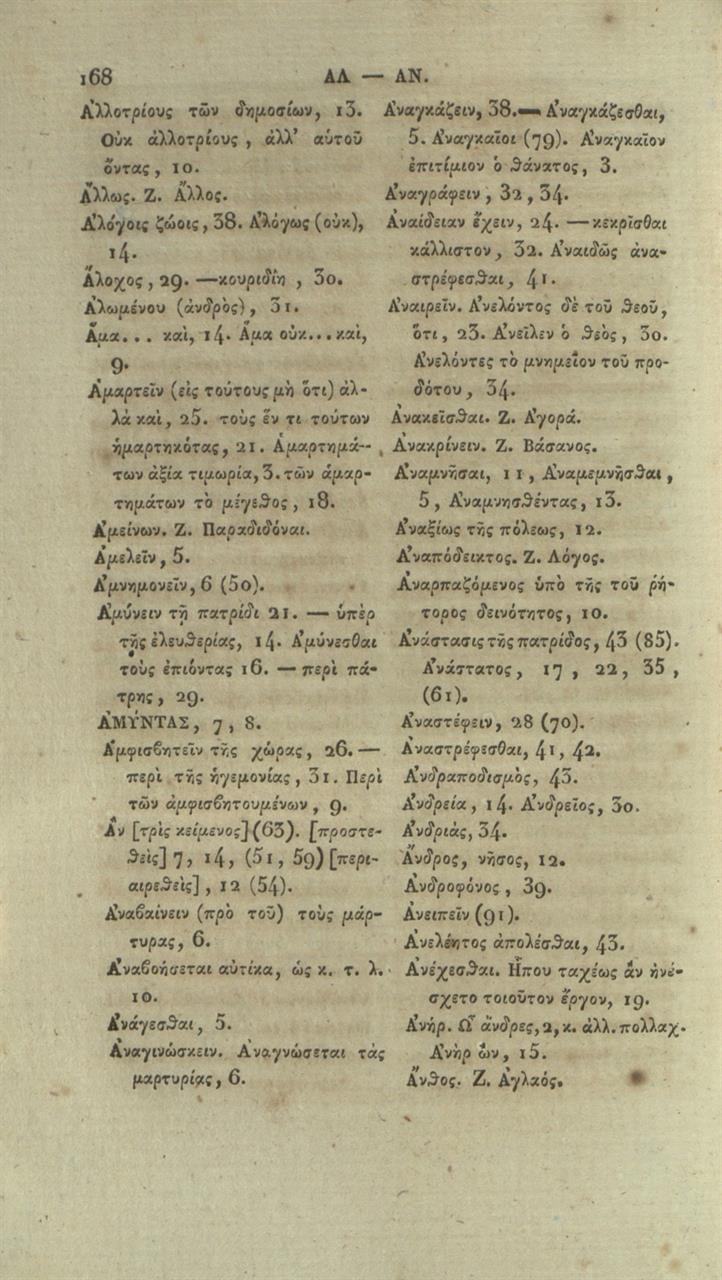 168
ΑΛ — ΑΝ.
Ἀλλοτρίους τῶν δημοσίων, 13.
Οὐκ ἀλλοτρίους, ἀλλ' αὐτοῦ
ὄντας, 10.
Ἄλλως. Ζ. Ἄλλος.
Ἀλόγοις ζώοις, 38. Ἀλόγως (οὐκ),
14.
Ἄλοχος, 29. — κουριδίη, 30.
Ἀλωμένου (ἀνδρὸς), 31.
Ἅμα... καὶ, 14. Ἅμα οὐκ... καὶ,
9.
Ἁμαρτεῖν (εἰς τούτους μὴ ὅτι) ἀλ-
λὰ καὶ, 25. τοὺς ἕν τι τούτων
ἡμαρτηκότας, 21. Ἁμαρτημά-
των ἀξία τιμωρία, 3. τῶν ἁμαρ-
τημάτων τὸ μέγεθος, 18.
Ἀμείνων. Ζ. Παραδιδόναι.
Ἀμελεῖν, 5.
Ἀμνημονεῖν, 6 (50).
Ἀμύνειν τῇ πατρίδι 21. — ὑπὲρ
τῆς ἐλευθερίας, 14. Ἀμύνεσθαι
τοὺς ἐπιόντας 16. — περὶ πά-
τρης, 29.
ΑΜΥΝΤΑΣ, 7, 8.
Ἀμφισβητεῖν τῆς χώρας, 26. —
περὶ τῆς ἡγεμονίας, 31. Περὶ
τῶν ἀμφισβητουμένων, 9.
Ἂν [τρὶς κείμενος] (63). [προστε-
θεὶς] 7, 14, (51, 59) [περι-
αιρεθεὶς], 12 (54).
Ἀναβαίνειν (πρὸ τοῦ) τοὺς μάρ-
τυρας, 6.
Ἀναβοήσεται αὐτίκα, ὡς κ. τ. λ.
10.
Ἀνάγεσθαι, 5.
Ἀναγινώσκειν. Ἀναγνώσεται τὰς
μαρτυρίας, 6.
Ἀναγκάζειν, 38. — Ἀναγκάζεσθαι,
5. Ἀναγκαῖοι (79). Ἀναγκαῖον
ἐπιτίμιον ὁ θάνατος, 3.
Ἀναγράφειν, 32, 34.
Ἀναίδειαν ἔχειν, 24. — κεκρῖσθαι
κάλλιστον, 32. Ἀναιδῶς ἀνα-
στρέφεσθαι, 41.
Ἀναιρεῖν. Ἀνελόντος δὲ τοῦ θεοῦ,
ὅτι, 23. Ἀνεῖλεν ὁ θεὸς, 30.
Ἀνελόντες τὸ μνημεῖον τοῦ προ-
δότου, 34.
Ἀνακεῖσθαι. Ζ. Ἀγορά.
Ἀνακρίνειν. Ζ. Βάσανος.
Ἀναμνῆσαι, 11, Ἀναμεμνῆσθαι,
5, Ἀναμνησθέντας, 13.
Ἀναξίως τῆς πόλεως, 12.
Ἀναπόδεικτος. Ζ. Λόγος.
Ἀναρπαζόμενος ὑπὸ τῆς τοῦ ῥή-
τορος δεινότητος, 10.
Ἀνάστασις τῆς πατρίδος, 43 (85).
Ἀνάστατος, 17, 22, 35,
(61).
Ἀναστέφειν, 28 (70).
Ἀναστρέφεσθαι, 41, 42.
Ἀνδραποδισμὸς, 43.
Ἀνδρεία, 14. Ἀνδρεῖος, 30.
Ἀνδριὰς, 34.
Ἄνδρος, νῆσος, 12.
Ἀνδροφόνος, 39.
Ἀνειπεῖν (91).
Ἀνελέητος ἀπολέσθαι, 43.
Ἀνέχεσθαι. Ἦπου ταχέως ἂν ἠνέ-
σχετο τοιοῦτον ἔργον, 19.
Ἀνήρ. Ὦ ἄνδρες, 2, κ. ἀλλ. πολλαχ.
Ἀνὴρ ὢν, 15.
Ἄνθος. Ζ. Ἀγλαός.